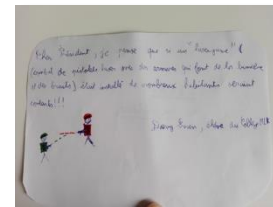 Cher Président, je pense que si un "
(combat de pistolets laser avec des qui font de la lumière
et des bruits) était installé de nombreux habitants seraient
contents!!!
élève au collège